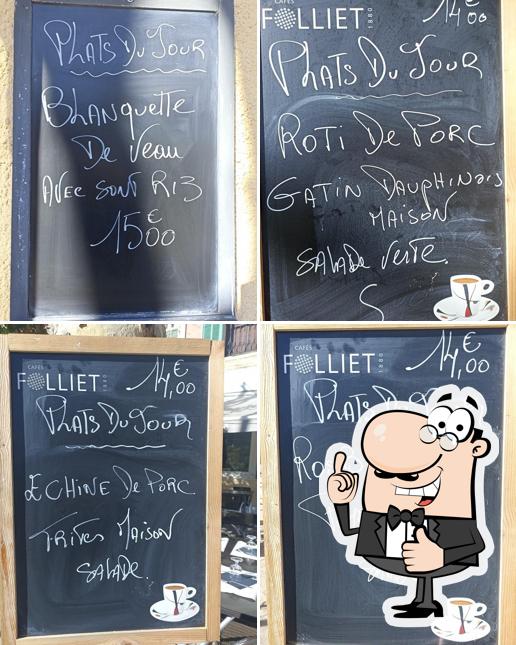 Plats Du Jour
Blanquette
De Veau
Avec sont Riz
15€00
CAFÉS
FOLLIET 1880
14€00
Plats Du Jour
Roti De Porc
Gatin Dauphinois
Maison
Salade Verte.
CAFÉS
FOLLIET 1880
14,€00
Plats Du Jour
Echine De Porc
Frites Maison
Salade.
CAFÉS
FOLLIET 1880
14,€00
Plats